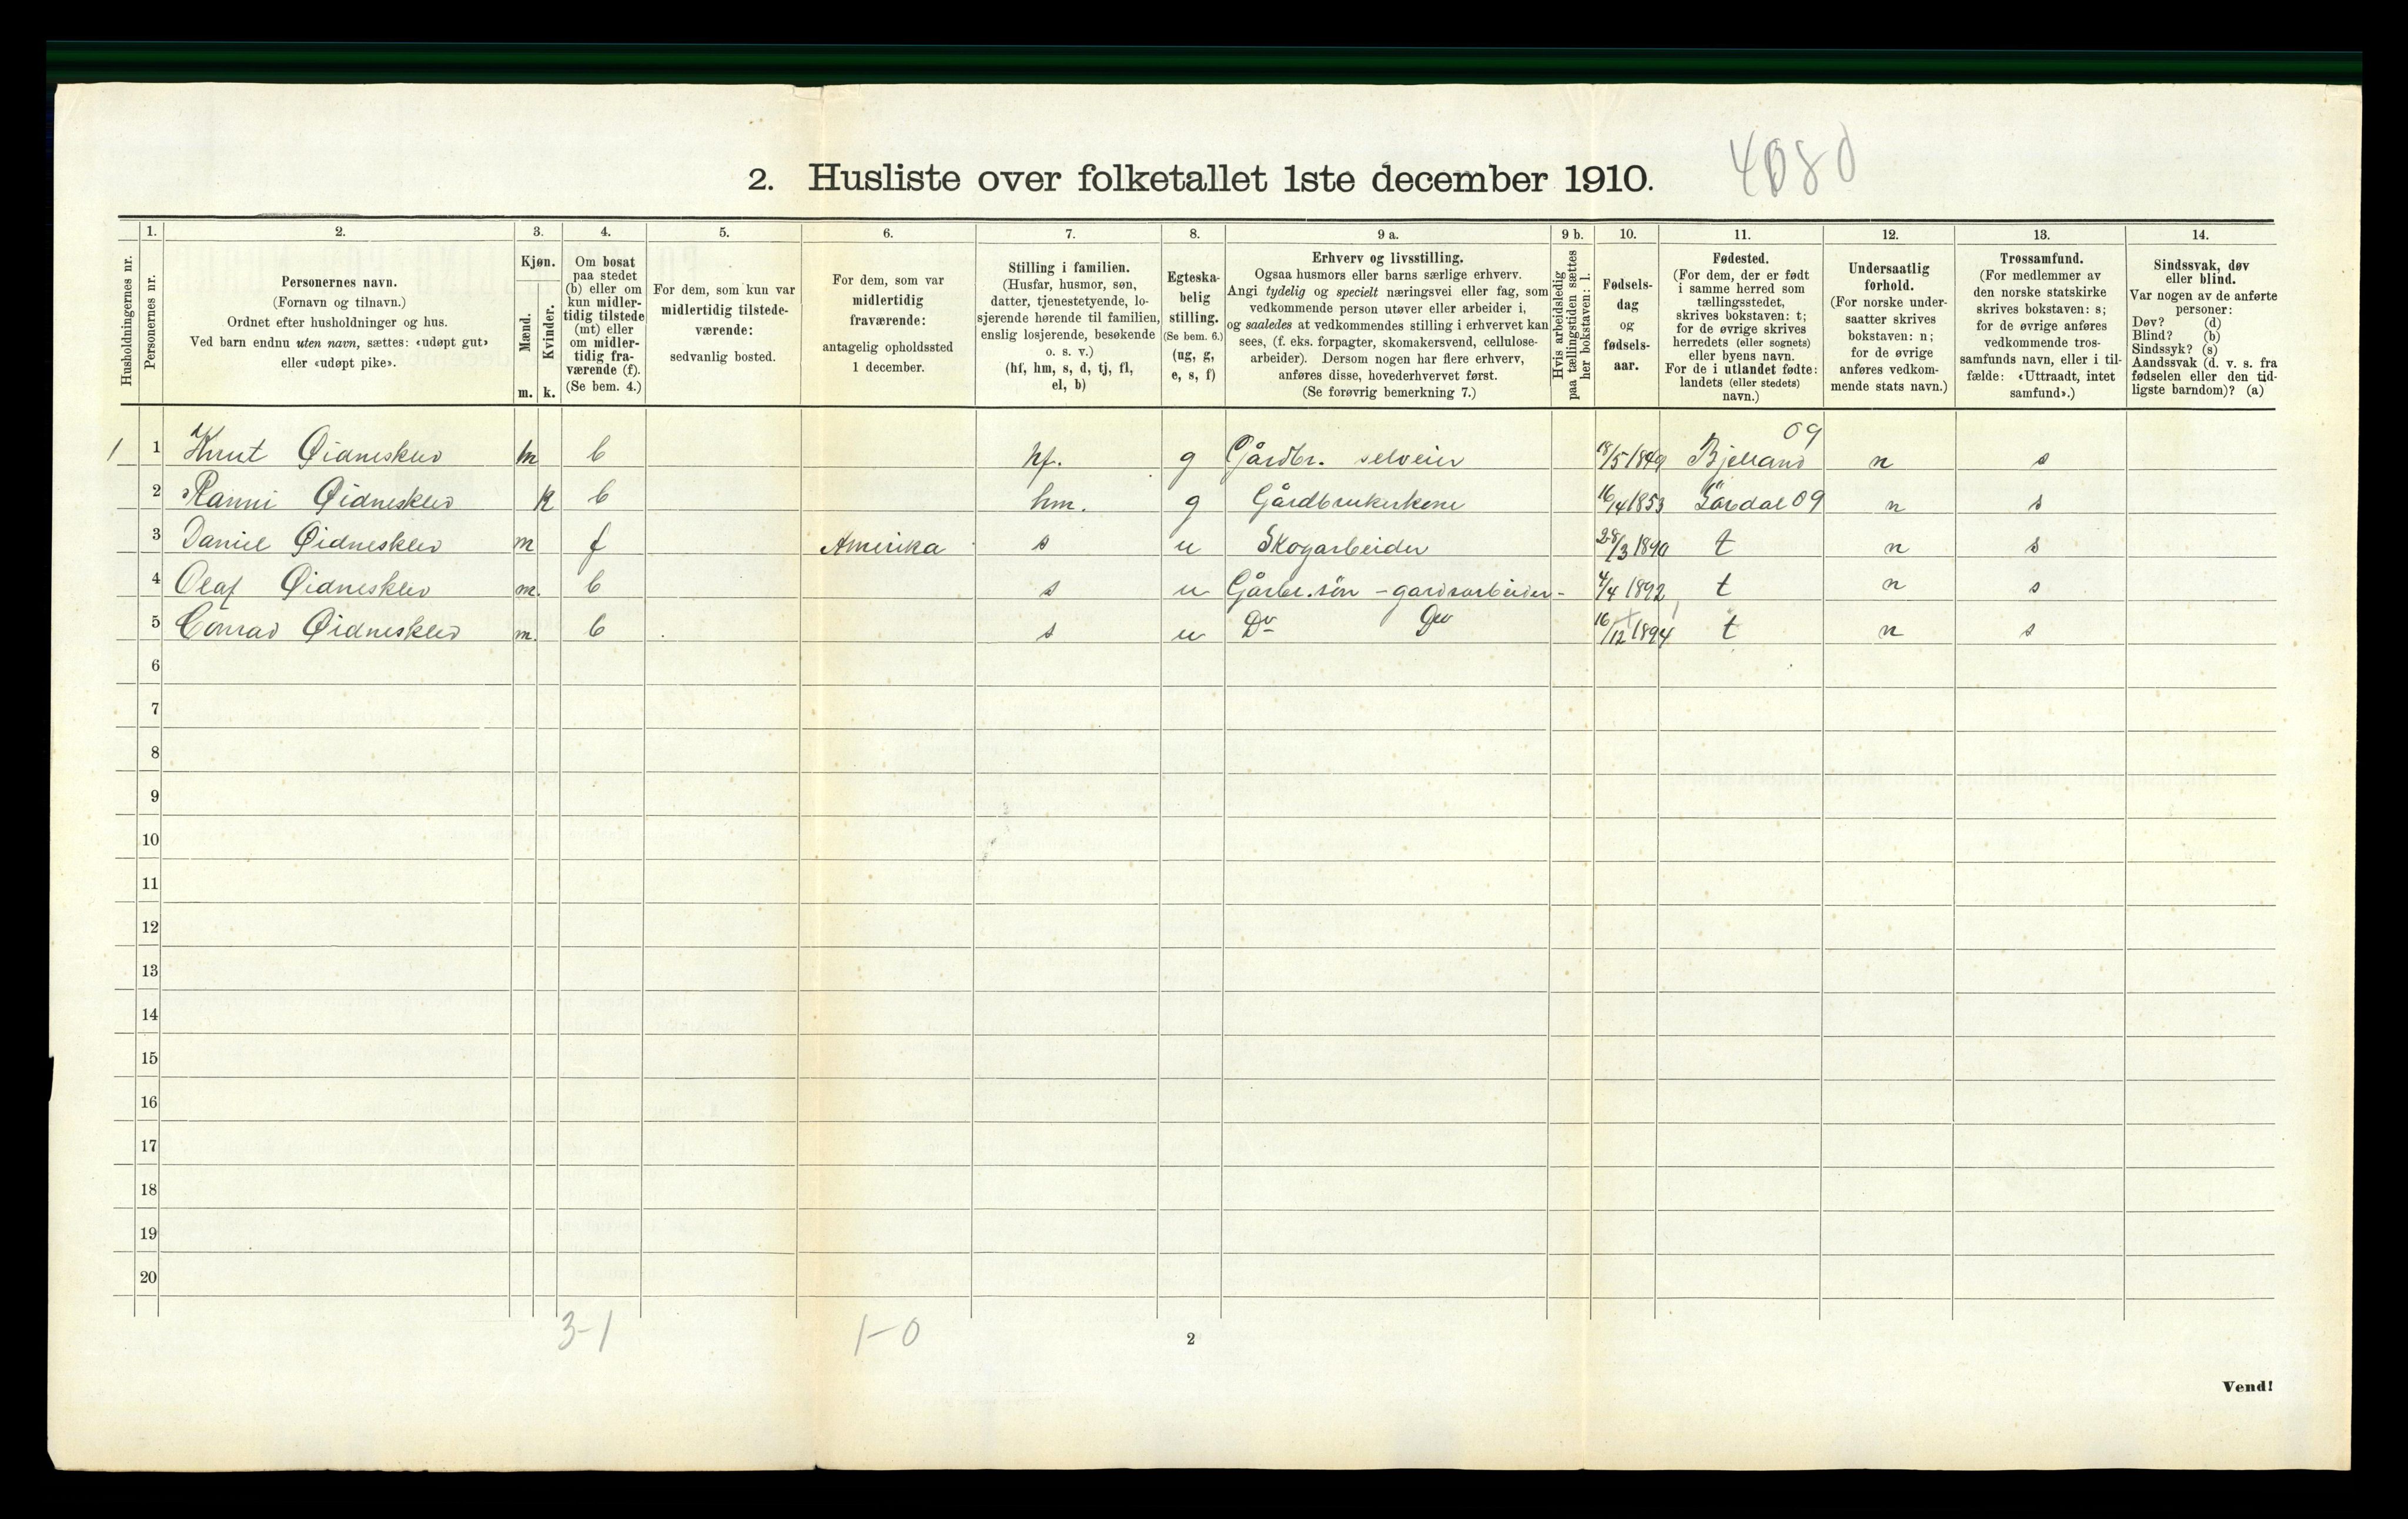 4080
2. Husliste over folketallet 1ste december 1910.
Husholdningernes nr.
1.
Personernes nr.
2.
Personernes navn.
(Fornavn og tilnavn.)
Ordnet efter husholdninger og hus.
Ved barn endnu uten navn, sættes: «udøpt gut»
eller «udøpt pike».
3.
Kjøn.
Mænd.
Kvinder.
m. k.
4.
Om bosat
paa stedet
(b) eller om
kun midler-
tidig tilstede
(mt) eller
om midler-
tidig fra-
værende (f).
(Se bem. 4.)
5.
For dem, som kun var
midlertidig tilstede-
værende:
sedvanlig bosted.
6.
For dem, som var
midlertidig
fraværende:
antagelig opholdssted
1 december.
7.
Stilling i familien.
(Husfar, husmor, søn,
datter, tjenestetyende, lo-
sjerende hørende til familien,
enslig losjerende, besøkende
o. s. v.)
(hf, hm, s, d, tj, fl,
el, b)
8.
Egteska-
belig
stilling.
(Se bem. 6.)
(ug, g,
e, s, f)
9 a.
Erhverv og livsstilling.
Ogsaa husmors eller barns særlige erhverv.
Angi tydelig og specielt næringsvei eller fag, som
vedkommende person utøver eller arbeider i,
og saaledes at vedkommendes stilling i erhvervet kan
sees, (f. eks. forpagter, skomakersvend, cellulose-
arbeider). Dersom nogen har flere erhverv,
anføres disse, hovederhvervet først.
(Se forøvrig bemerkning 7.)
9 b.
Hvis arbeidsledig
paa tællingstiden sættes
her bokstaven: l.
10.
Fødsels-
dag
og
fødsels-
aar.
11.
Fødested.
(For dem, der er født
i samme herred som
tællingsstedet,
skrives bokstaven: t;
for de øvrige skrives
herredets (eller sognets)
eller byens navn.
For de i utlandet fødte:
landets (eller stedets)
navn.)
12.
Undersaatlig
forhold.
(For norske under-
saatter skrives
bokstaven: n;
for de øvrige
anføres vedkom-
mende stats navn.)
13.
Trossamfund.
(For medlemmer av
den norske statskirke
skrives bokstaven: s;
for de øvrige anføres
vedkommende tros-
samfunds navn, eller i til-
fælde: «Uttraadt, intet
samfund».)
14.
Sindssvak, døv
eller blind.
Var nogen av de anførte
personer:
Døv? (d)
Blind? (b)
Sindssyk? (s)
Aandssvak (d. v. s. fra
fødselen eller den tid-
ligste barndom)? (a)
09
1 1 Knut Øidnesklev m b hf. g Gårdbr. selveier /5 1849 Bjelland n s
2 Ranni Øidnesklev k b hm. g Gårdbrukerkone 16/4 1853 09 n s
3 Daniel Øidnesklev m f Amerika s u Skogarbeider 28/3 1890 t n s
4 Olaf Øidnesklev m. b s u Gårbr. sön - gardsarbeider - 4/4 1892 t n s
5 Conrad Øidnesklev m. b s u Do Do 16/12 1894 t n s
6
7
8
9
10
11
12
13
14
15
16
17
18
19
20
3-1 1-0
2
Vend!